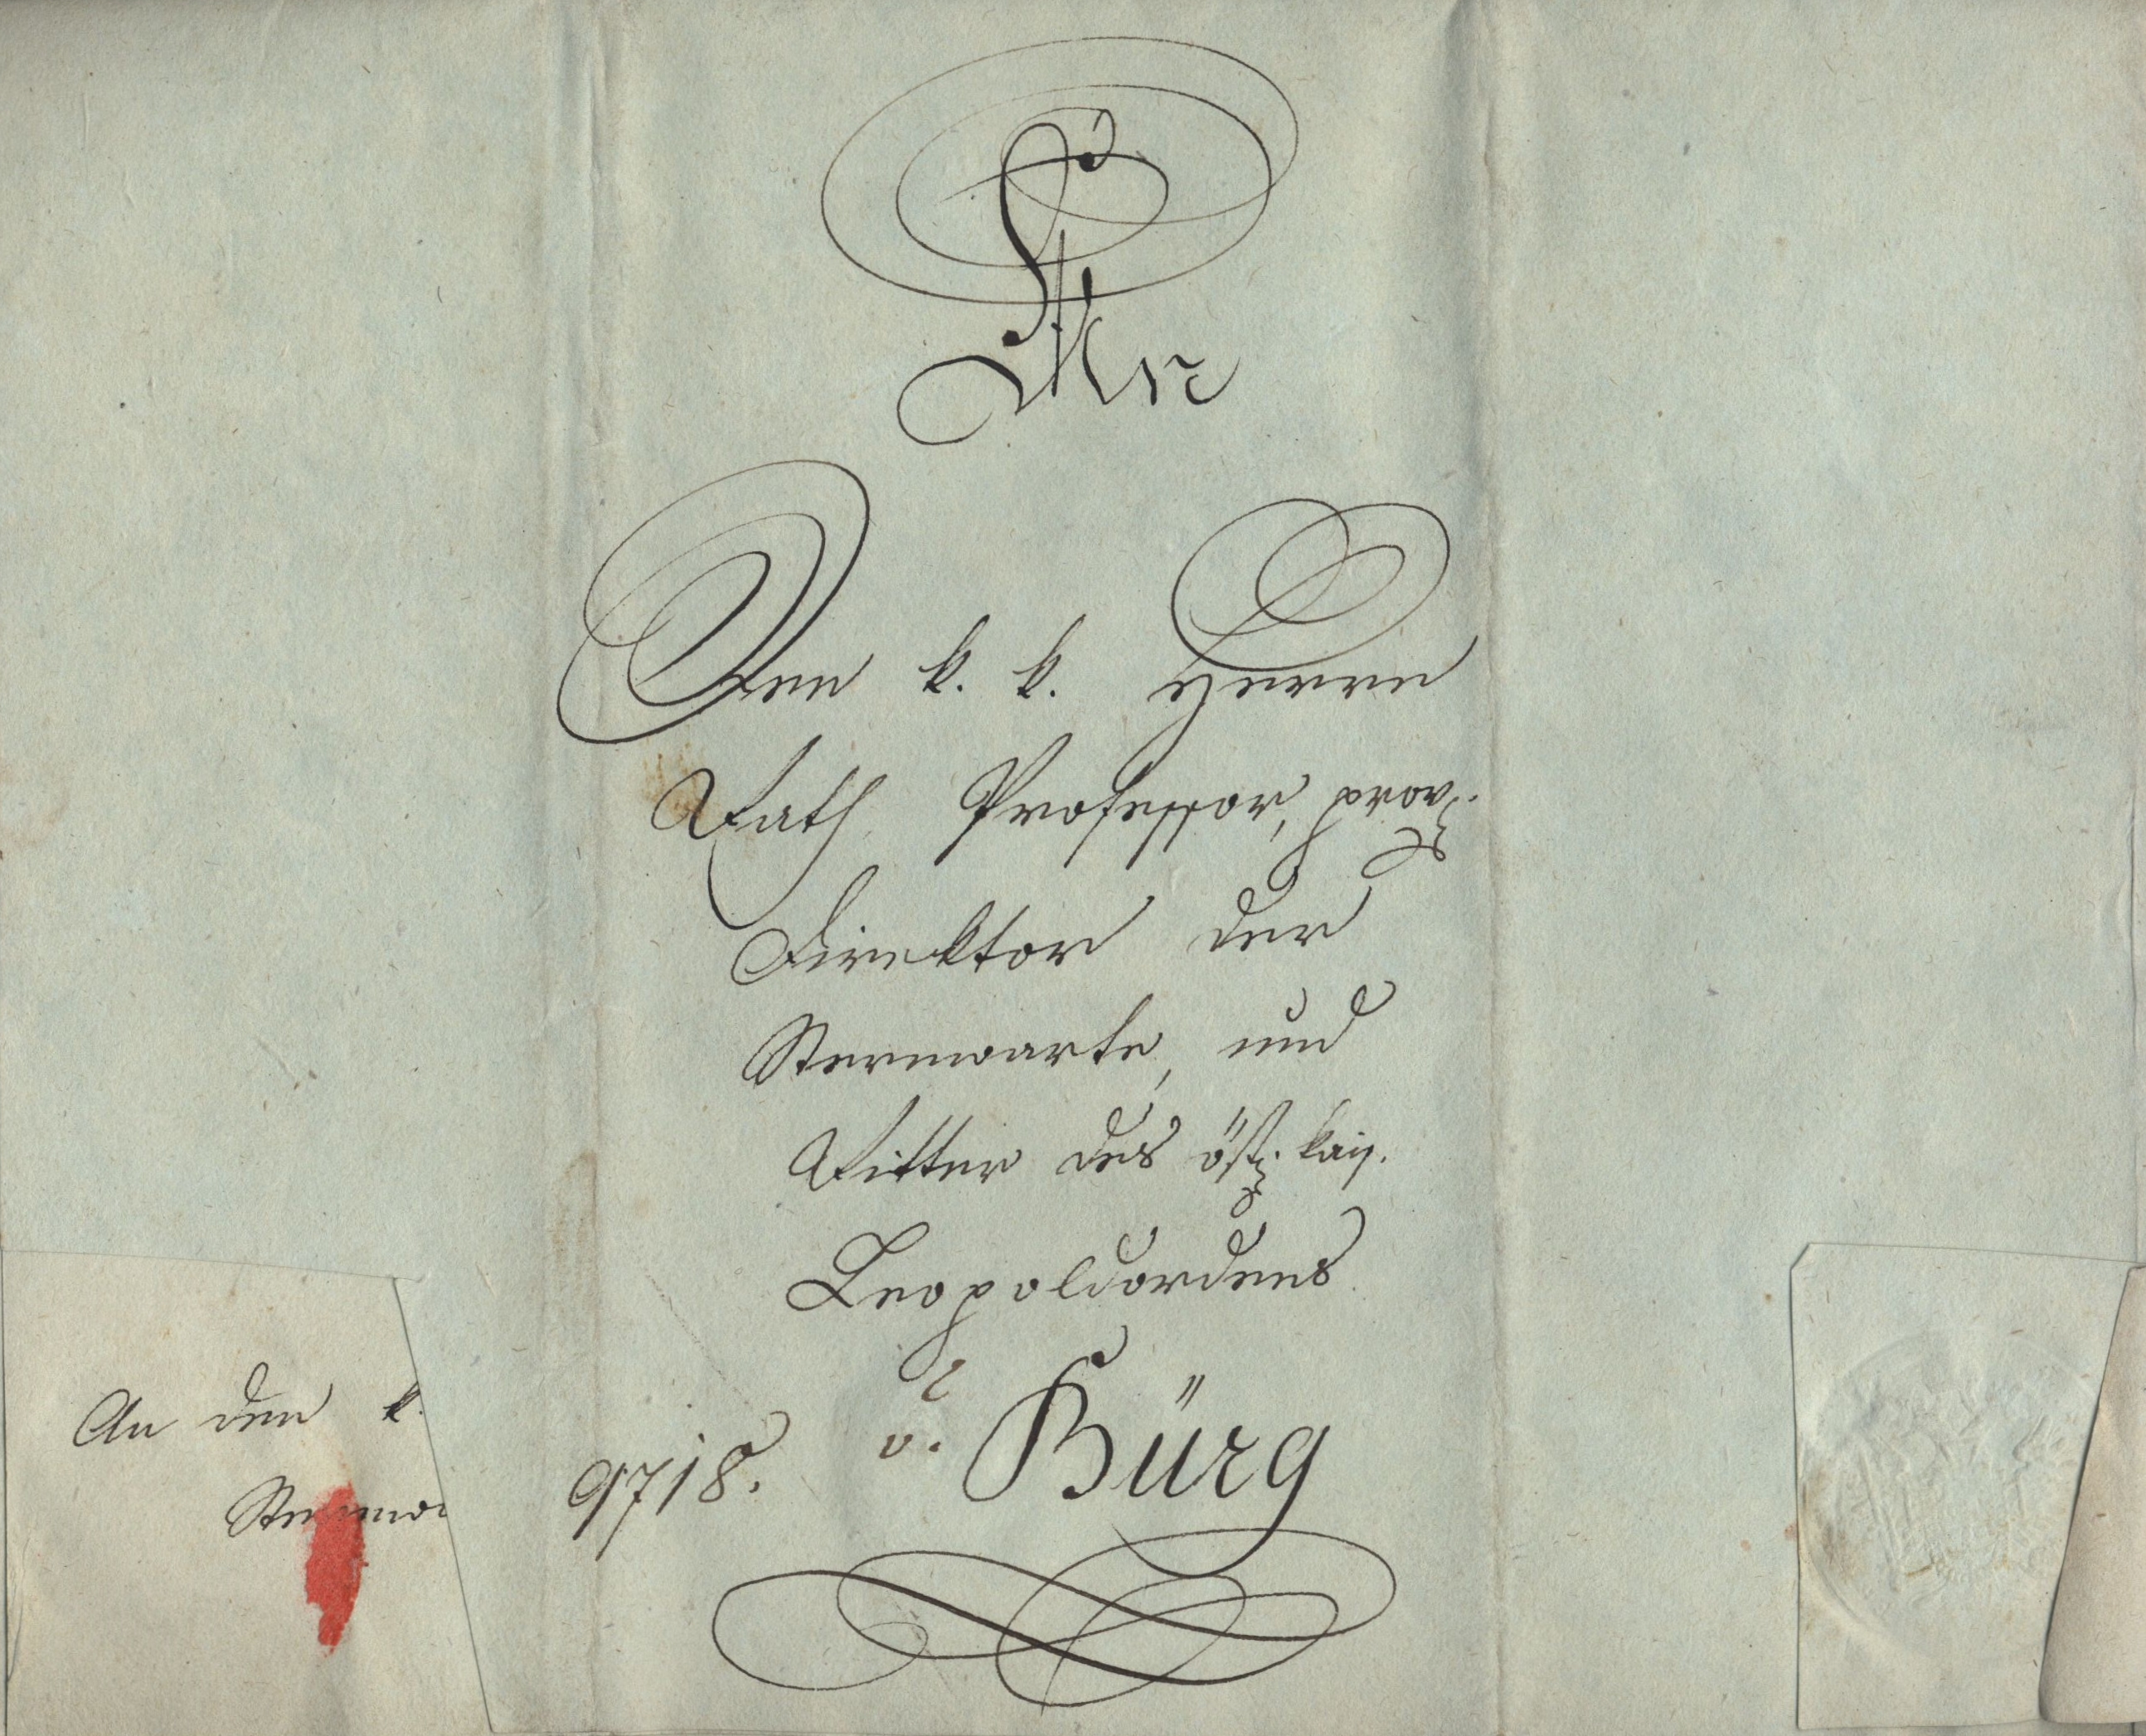 An
Den k. k. Herrn
Rath, Professor, prov.
Direktor der
Sternwarte, und
Ritter des öst. kais.
Leopoldordens
v. Bürg
9718.
An den k.
Sternwar